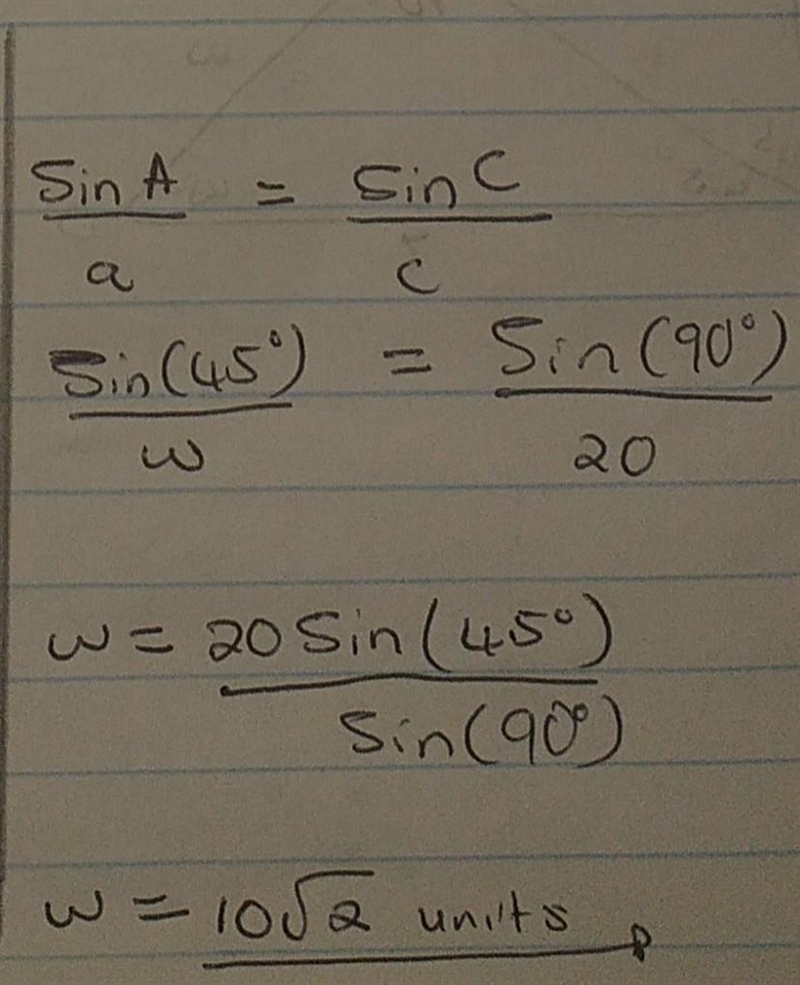 Sin A = Sin C
a c
Sin(45°) = Sin(90°)
w 20
w = 20 Sin(45°)
Sin(90°)
w = 10√2 units